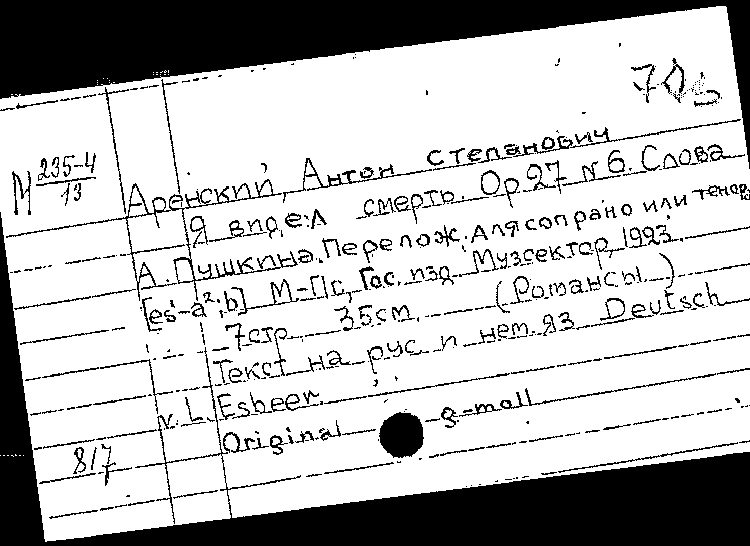 70
М 235-4/13
Аренский, Антон Степанович
Я видел смерть. Ор 27 N 6. Слова
А. Пушкина. Перелож. для сопрано или тенора
[es¹-a²; b] М-Пг, Гос. изд. Музсектор, 1923.
7стр. 35см. (Романсы.)
Текст на рус и нем. яз Deutsch
v. L. Esbeer.
Original g-moll
817